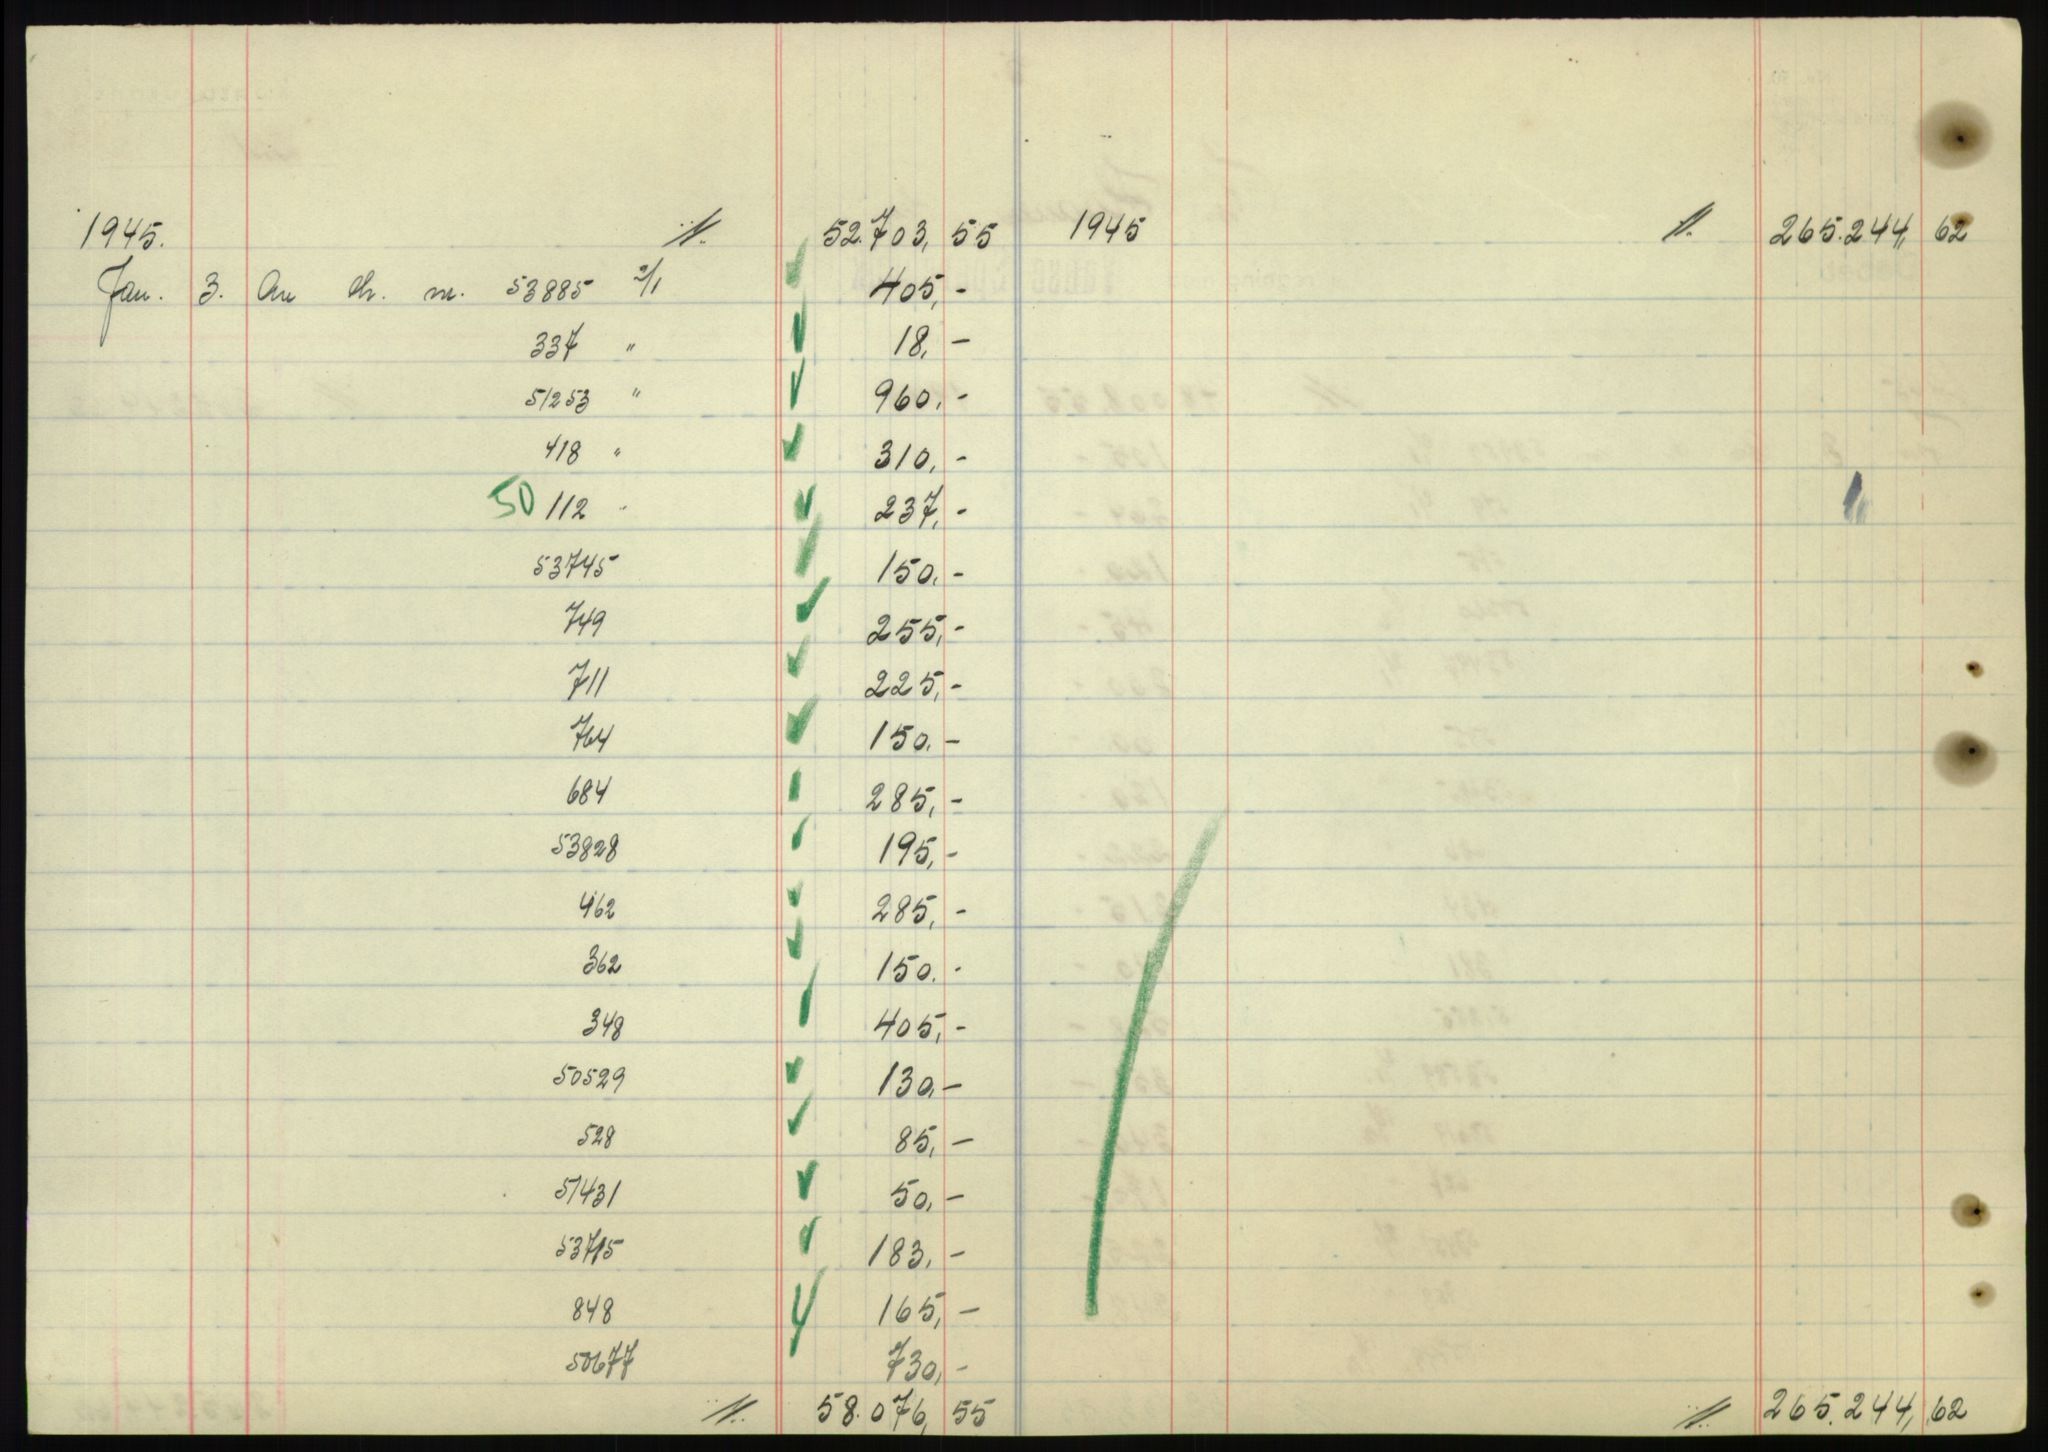 1945. ./. 52.703,55
Jan. 3. An ch. nr. 53885 2/1 405,-
337 " 18,-
51253 " 960,-
418 " 310,-
50 112 " 237,-
53745 150,-
749 255,-
711 225,-
764 150,-
684 285,-
53828 195,-
462 285,-
362 150.-
348 405,-
50529 130,-
528 85,-
51431 50,-
53715 183,-
848 165,-
50677 730,-
./. 58.076,55
1945 ./. 265.244,62
./. 265.244,62